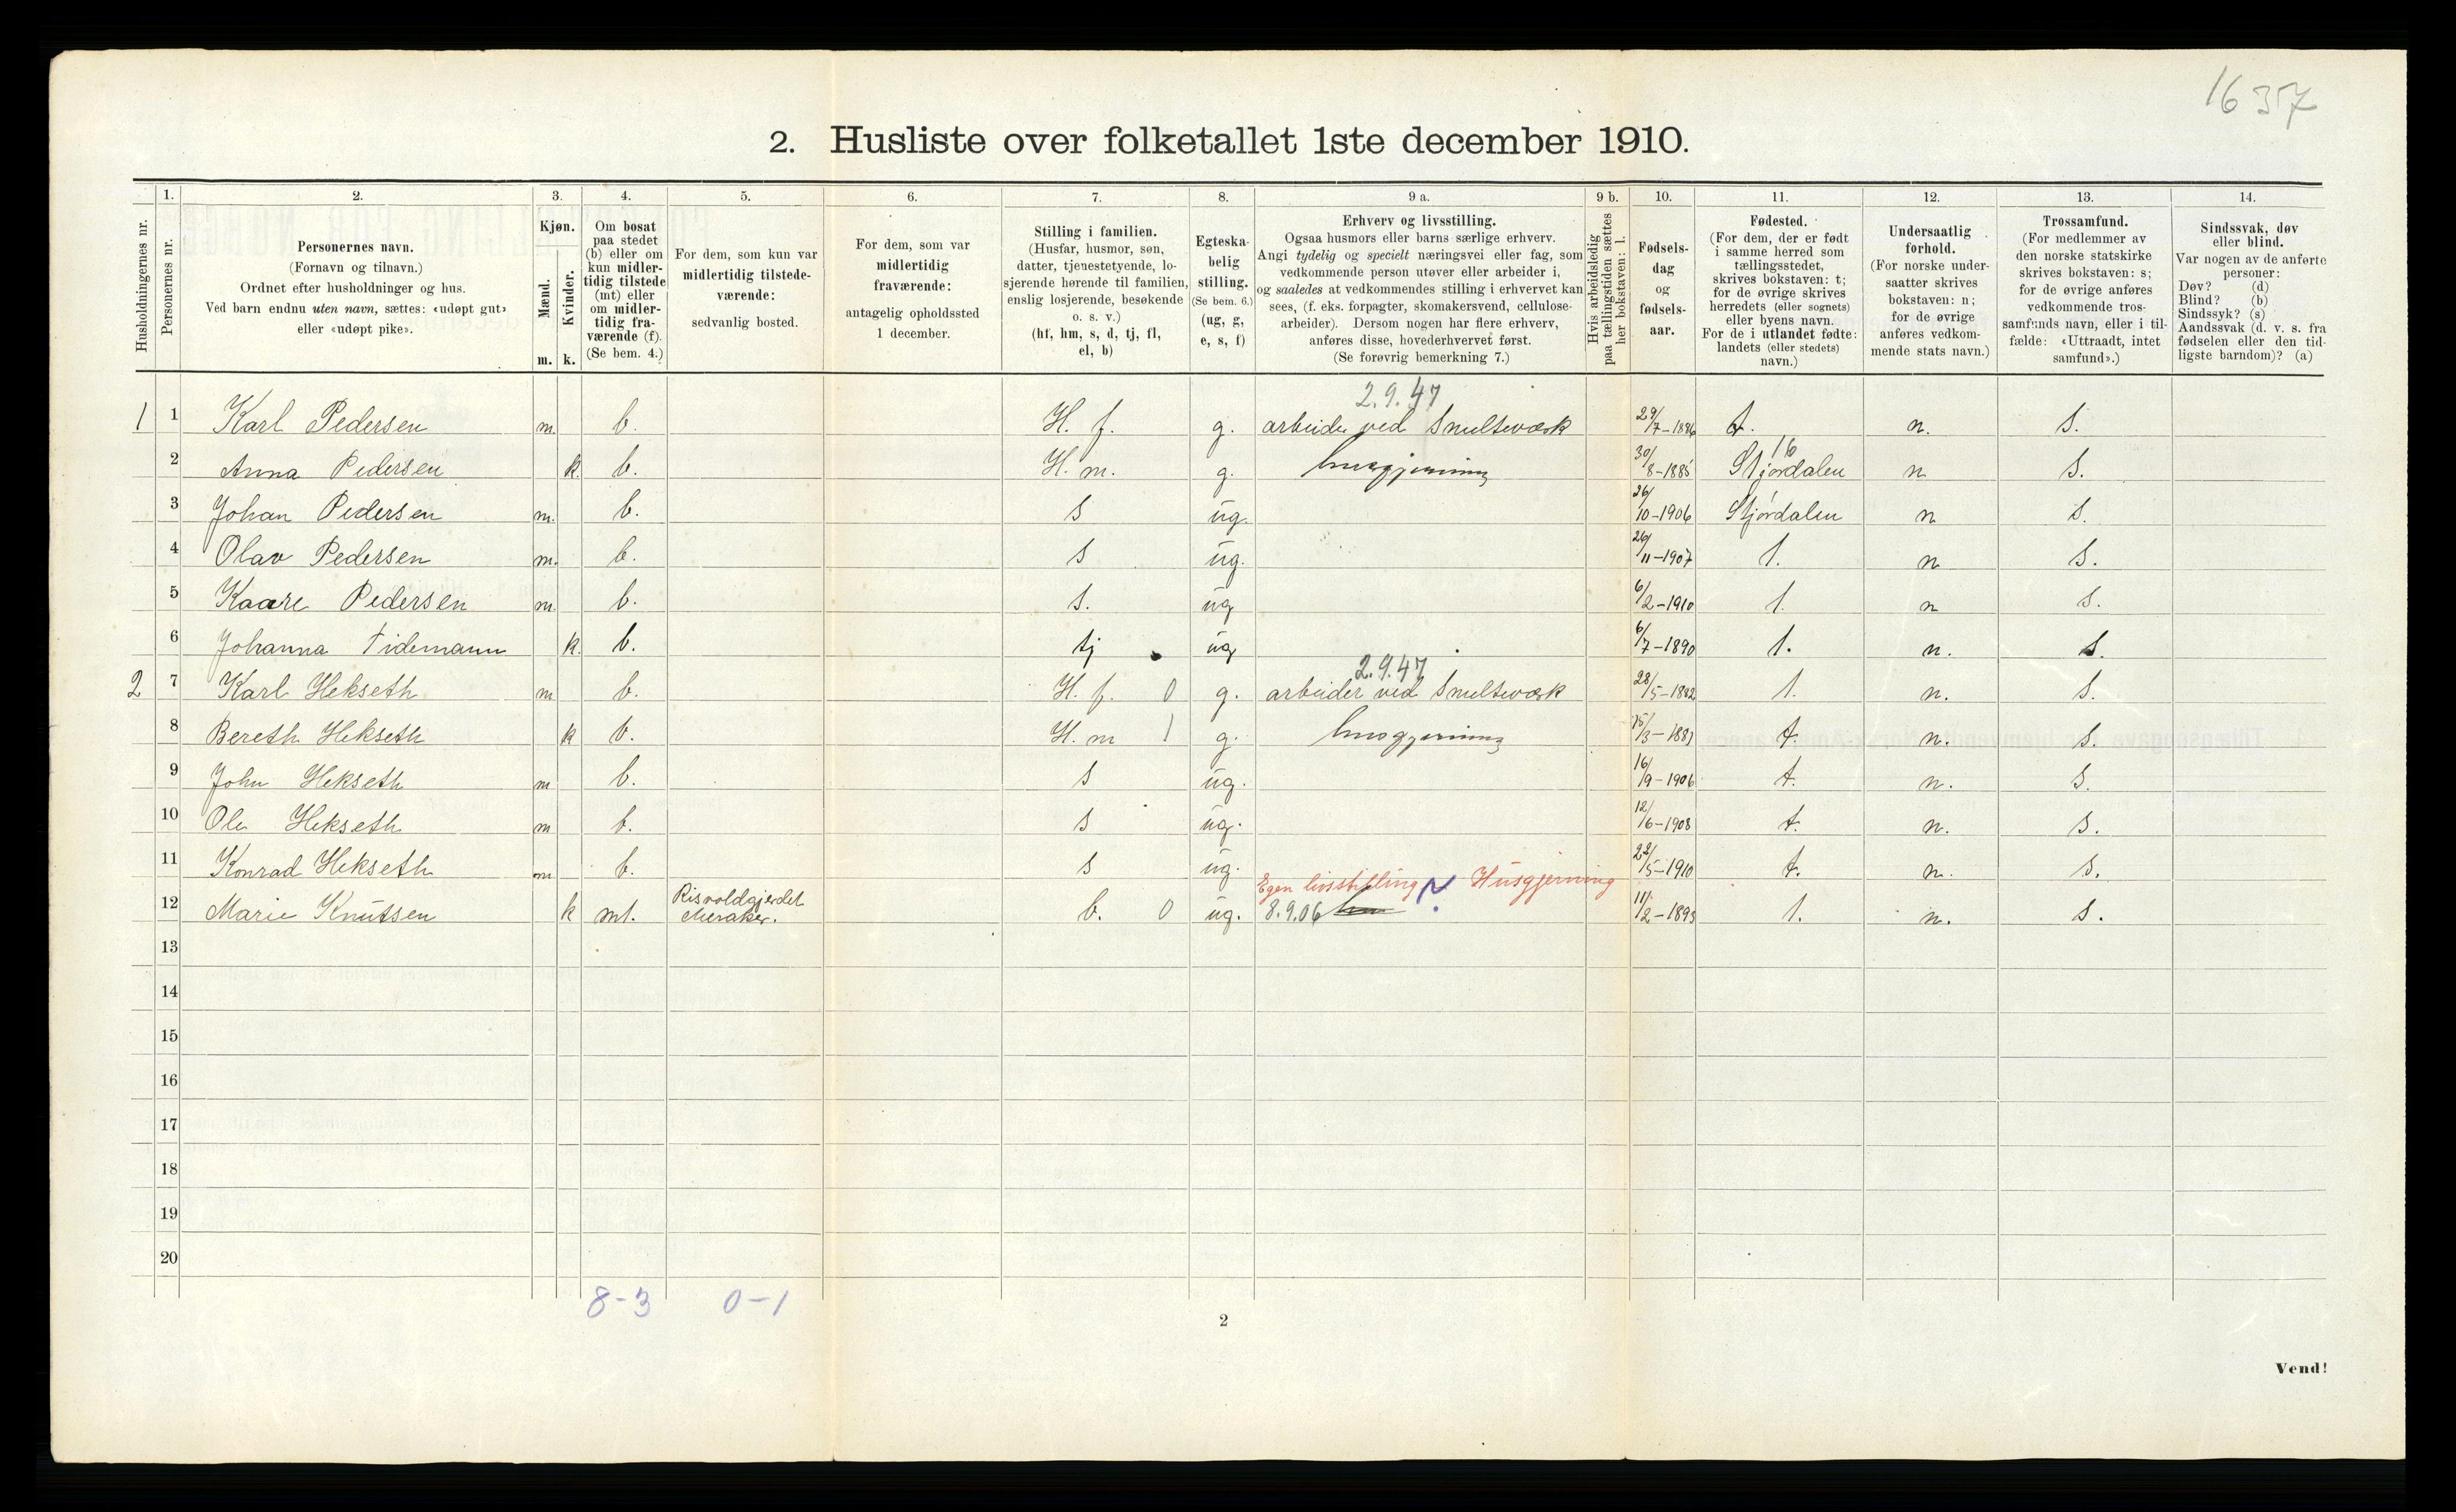 1637
2. Husliste over folketallet 1ste december 1910.
Husholdningernes nr.
1. Personernes nr.
2. Personernes navn. (Fornavn og tilnavn.) Ordnet efter husholdninger og hus. Ved barn endnu uten navn, sættes: «udøpt gut» eller «udøpt pike».
3. Kjøn. Mænd. m. Kvinder. k.
4. Om bosat paa stedet (b) eller om kun midlertidig tilstede (mt) eller om midlertidig fraværende (f). (Se bem. 4.)
5. For dem, som kun var midlertidig tilstedeværende: sedvanlig bosted.
6. For dem, som var midlertidig fraværende: antagelig opholdssted 1 december.
7. Stilling i familien. (Husfar, husmor, søn, datter, tjenestetyende, losjerende hørende til familien, enslig losjerende, besøkende o. s. v.) (hf, hm, s, d, tj, fl, el, b)
8. Egteskabelig stilling. (Se bem. 6.) (ug, g, e, s, f)
9 a. Erhverv og livsstilling. Ogsaa husmors eller barns særlige erhverv. Angi tydelig og specielt næringsvei eller fag, som vedkommende person utøver eller arbeider i, og saaledes at vedkommendes stilling i erhvervet kan sees, (f. eks. forpagter, skomakersvend, cellulosearbeider). Dersom nogen har flere erhverv, anføres disse, hovederhvervet først. (Se forøvrig bemerkning 7.)
9 b. Hvis arbeidsledig paa tællingstiden sættes her bokstaven: l.
10. Fødselsdag og fødselsaar.
11. Fødested. (For dem, der er født i samme herred som tællingsstedet, skrives bokstaven: t; for de øvrige skrives herredets (eller sognets) eller byens navn. For de i utlandet fødte: landets (eller stedets) navn.)
12. Undersaatlig forhold. (For norske undersaatter skrives bokstaven: n; for de øvrige anføres vedkommende stats navn.)
13. Trossamfund. (For medlemmer av den norske statskirke skrives bokstaven: s; for de øvrige anføres vedkommende trossamfunds navn, eller i tilfælde: «Uttraadt, intet samfund».)
14. Sindssvak, døv eller blind. Var nogen av de anførte personer: Døv? (d) Blind? (b) Sindssyk? (s) Aandssvak (d. v. s. fra fødselen eller den tidligste barndom)? (a)
2.9.47
1 1 Karl Pedersen m. b. H. f. g. arbeider ved Smelteværk 29/7-1886 t. n. S.
16
2 Anna Pedersen k. b. H. m. g. husgjerning 30/8-1885 Stjørdalen n S.
3 Johan Pedersen m. b. s ug. 26/10-1906 Stjørdalen n S.
4 Olav Pedersen m. b. s ug. 26/11-1907 t. n S.
5 Kaare Pedersen m. b. s. ug 6/2-1910 t. n S.
6 Johanna Tidemann k. b. tj ug 6/7-1890 t. n. S.
2.9.47
2 7 Karl Hekseth m b. H. f. 0 g. arbeider ved Smelteværk 28/5-1882 t. n. S.
8 Bereth Hekseth k b. H. m 1 g. husgjerning 15/3-1883 t. n. S.
9 John Hekseth m b. s ug. 16/9-1906 t. n. S.
10 Ole Hekseth m b. s ug. 12/6-1908 t. n. S.
11 Konrad Hekseth m b. s ug. 22/5-1910 t. n. S.
Egen livsstilling ? Husgjerning
12 Marie Knutsen k mt. Risvoldgjerdet Meraker. b. 0 ug. 8.9.06 11/2-1893 t. n. S.
13
14
15
16
17
18
19
20
8-3 0-1
2
Vend!